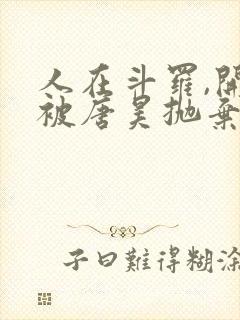 人在斗羅,開
被唐昊拋棄
子曰難得糊涂